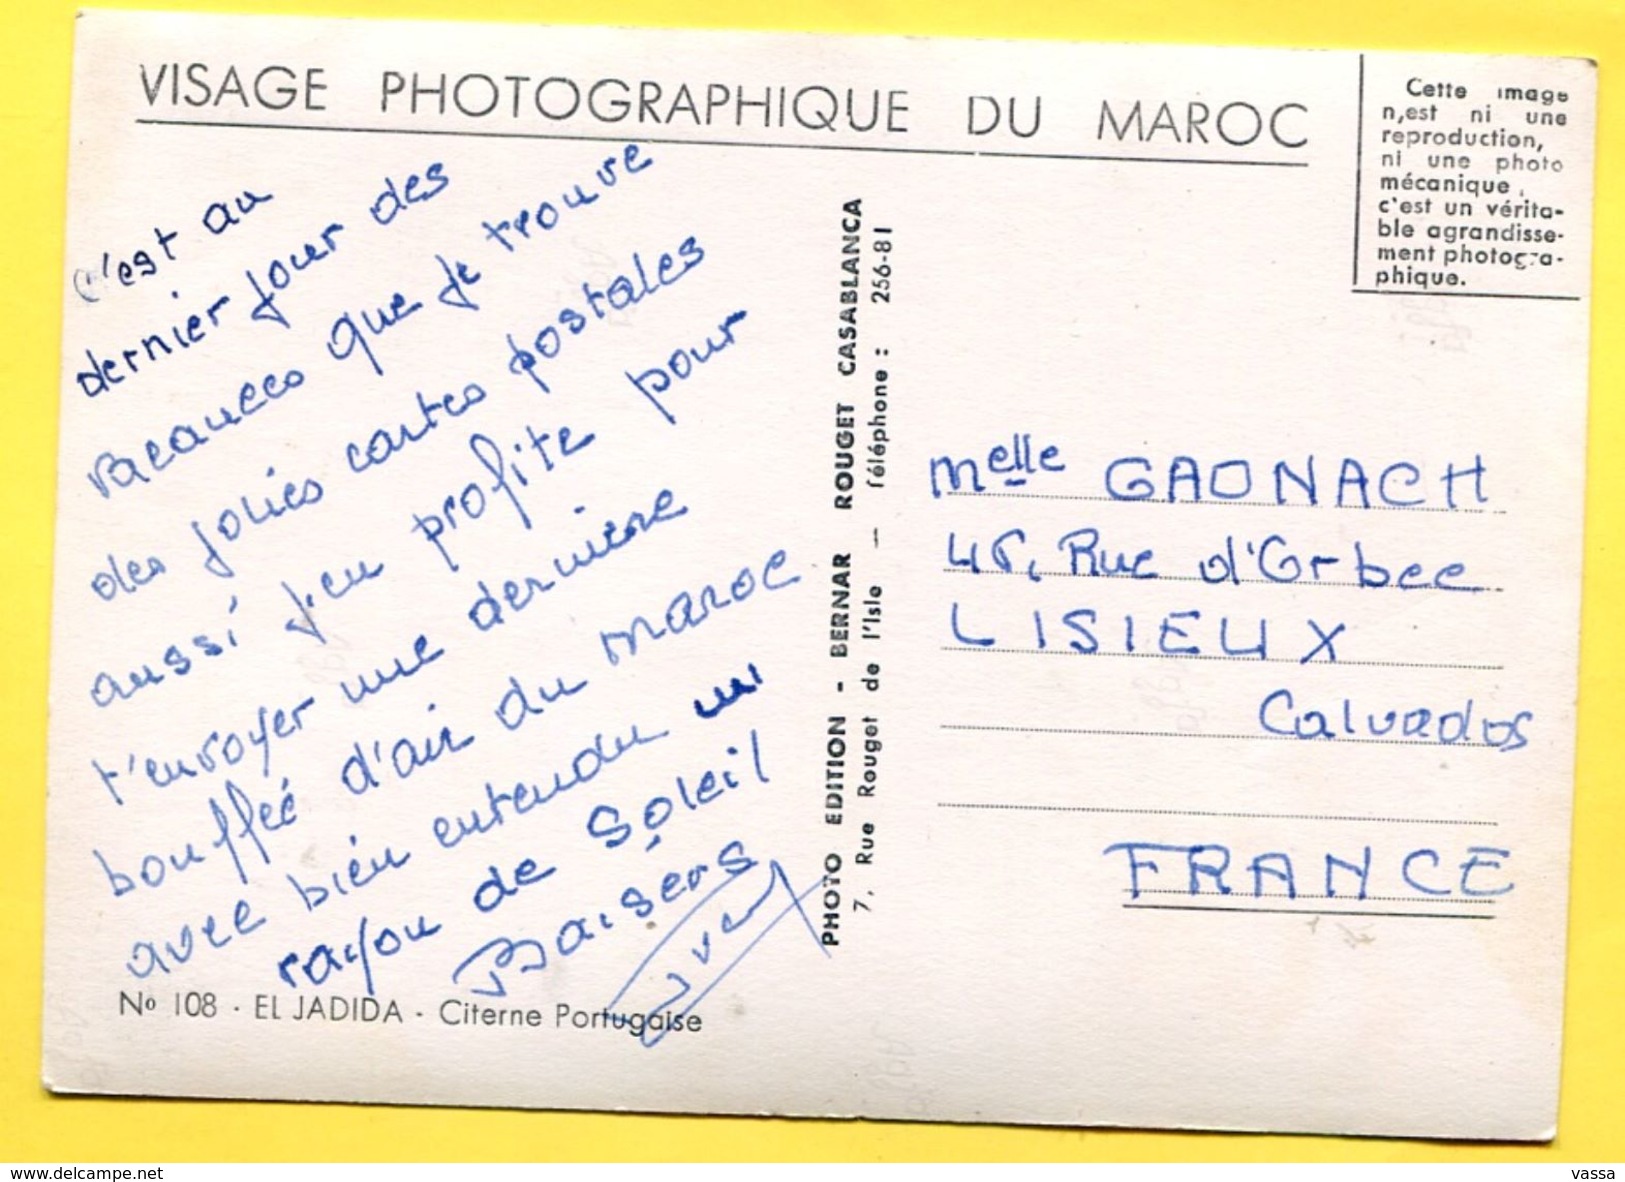 VISAGE PHOTOGRAPHIQUE DU MAROC
Cette image
n,est ni une
reproduction,
ni une photo
mécanique,
c'est un vérita-
ble agrandisse-
ment photogra-
phique.
c'est au
dernier jour des
vacances que je trouve
des jolies cartes postales
aussi j'en profite pour
t'envoyer une dernière
bouffée d'air du maroc
avec bien entendu un
rayon de Soleil
Baisers
PHOTO EDITION - BERNAR ROUGET CASABLANCA
7, Rue Rouget de l'Isle — Téléphone : 256-81
Melle GAONACH
45, Rue d'Orbec
LISIEUX
Calvados
FRANCE
No 108 - EL JADIDA - Citerne Portugaise
www.delcampe.net
vassa